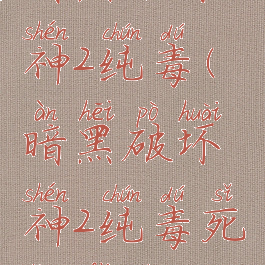 shén chún dú
神2纯毒(
àn hēi pò huài
暗黑破坏
shén chún dú sǐ
神2纯毒死